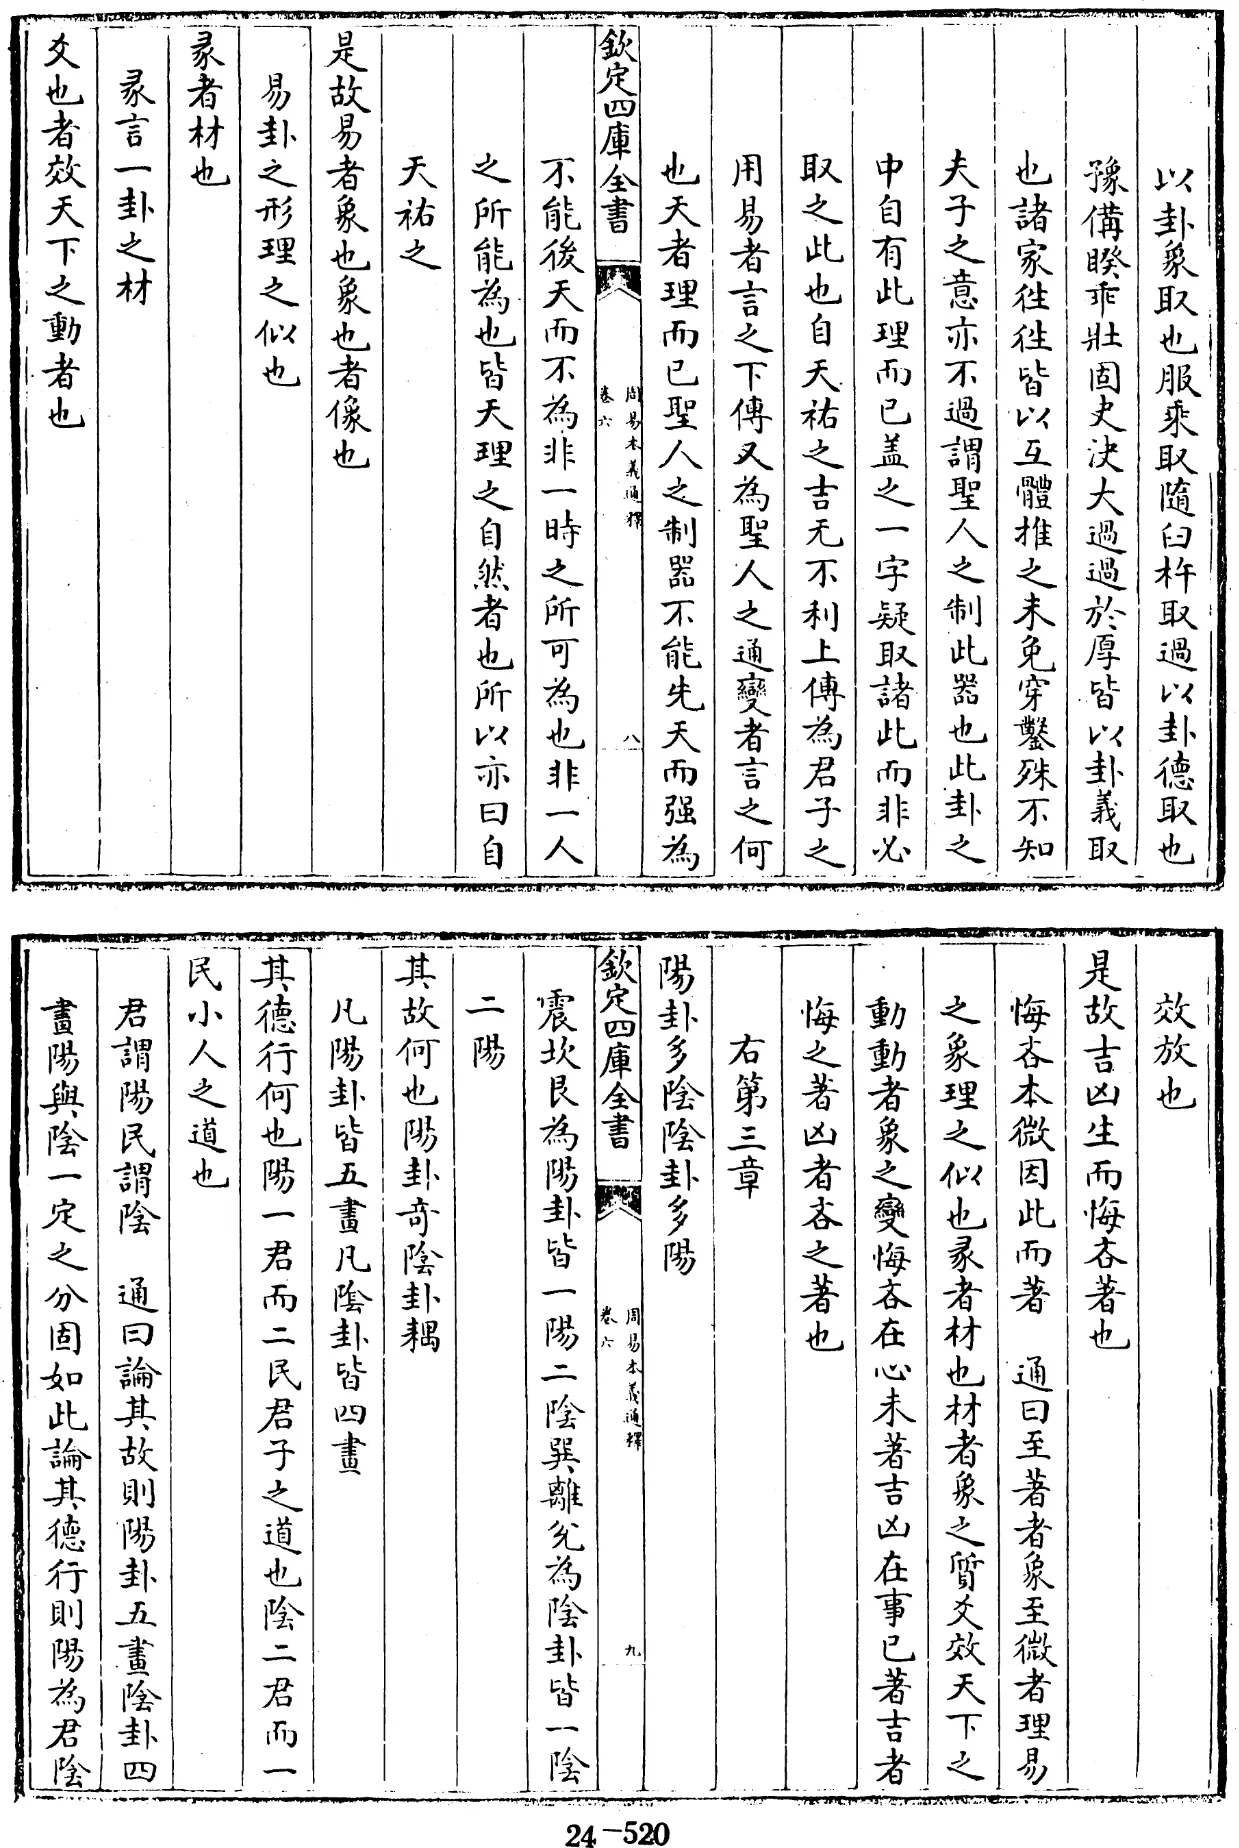 以卦象取也服乘取隨臼杵取過以卦德取也
豫備睽乖壯固史決大過過於厚皆以卦義取
也諸家徃徃皆以互體推之未免穿鑿殊不知
夫子之意亦不過謂聖人之制此器也此卦之
中自有此理而已盖之一字疑取諸此而非必
取之此也自天祐之吉无不利上傳為君子之
用易者言之下傳又為聖人之通變者言之何
也天者理而已聖人之制器不能先天而强為
欽定四庫全書
周易本義通釋
卷六
八
不能後天而不為非一時之所可為也非一人
之所能為也皆天理之自然者也所以亦曰自
天祐之
是故易者象也象也者像也
易卦之形理之似也
彖者材也
彖言一卦之材
爻也者效天下之動者也
效放也
是故吉凶生而悔吝著也
悔吝本微因此而著　通曰至著者象至微者理易
之象理之似也彖者材也材者象之質爻效天下之
動動者象之變悔吝在心未著吉凶在事已著吉者
悔之著凶者吝之著也
右第三章
陽卦多陰陰卦多陽
欽定四庫全書
周易本義通釋
卷六
九
震坎艮為陽卦皆一陽二陰巽離兊為陰卦皆一陰
二陽
其故何也陽卦奇陰卦耦
凡陽卦皆五畫凡陰卦皆四畫
其德行何也陽一君而二民君子之道也陰二君而一
民小人之道也
君謂陽民謂陰　通曰論其故則陽卦五畫陰卦四
畫陽與陰一定之分固如此論其德行則陽為君陰
24-520